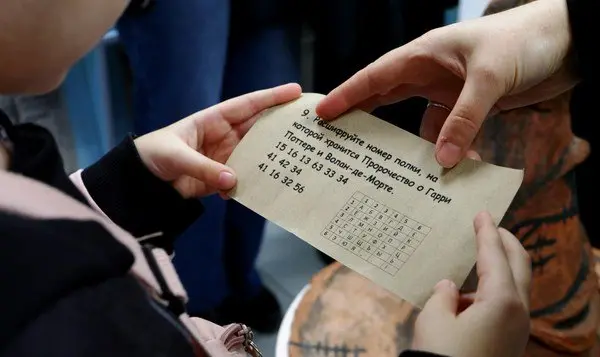 9. Расшифруйте номер полки, на
которой хранится Пророчество о Гарри
Поттере и Волан-де-Морте.
15 16 13 63 33 34
41 42 34
41 16 32 56